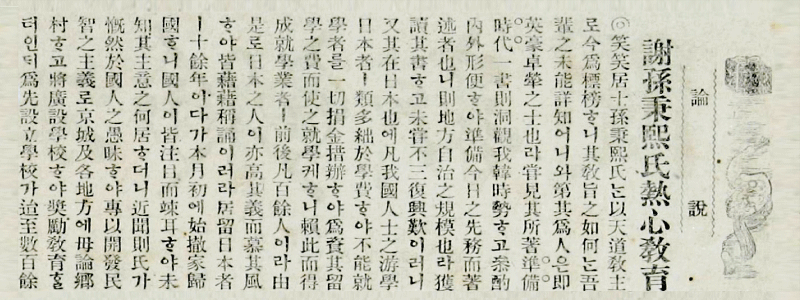 論說
謝孫秉熙氏熱心敎育
◎笑笑居士孫秉熙氏는以天道敎主
로今爲標榜ᄒᆞ니其敎旨之如何는吾
輩之未能詳知어니와第其爲人은卽
英豪卓犖之士也라甞見其所著準備
時代一書則洞觀我韓時勢ᄒᆞ고叅酌
內外形便ᄒᆞ야準備今日之先務而著
述者也니則地方自治之規模也라獲
讀其書ᄒᆞ고未甞不三復興歎이러니
又其在日本也에凡我國人士之游學
日本者ㅣ類多絀於學費ᄒᆞ야不能就
學者를一切捐金措辦ᄒᆞ야爲資其留
學之費而使之就學케ᄒᆞ니賴此而得
成就學業者ㅣ前後凡百餘人이라由
是로日本之人이亦高其義而慕其風
ᄒᆞ야皆藉藉稱誦이러라居留日本者
ㅣ十餘年이다가本月初에始撤家歸
國ᄒᆞ니國人이皆注目而竦耳ᄒᆞ야未
知其主意之何居ᄒᆞ더니近聞則氏가
慨然於國人之愚昧ᄒᆞ야專以開發民
智之主義로京城及各地方에毋論鄕
村ᄒᆞ고將廣設學校ᄒᆞ야奬勵敎育ᄒᆞᆯ
터인ᄃᆡ爲先設立學校가迨至數百餘